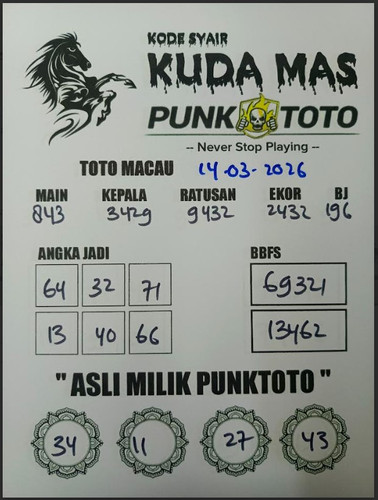 KODE SYAIR
KUDA MAS
PUNK TOTO
-- Never Stop Playing --
TOTO MACAU 14-03-2026
MAIN KEPALA RATUSAN EKOR BJ
843 3429 9432 2432 196
ANGKA JADI BBFS
64 32 71 69321
13 40 66 13462
" ASLI MILIK PUNKTOTO "
34 11 27 43